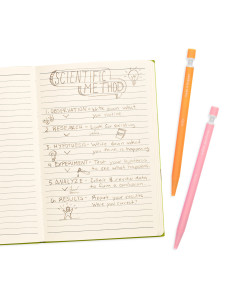 SCIENTIFIC
METHOD
1. OBSERVATION - Write down what
you notice
2. RESEARCH -
3. HYPOTHESIS - Write down what
you think is happening
4. EXPERIMENT - Test your hypothesis
to see what happens
5. ANALYZE - data
to form a conclusion
6. RESULTS - Report your results
Were you correct?